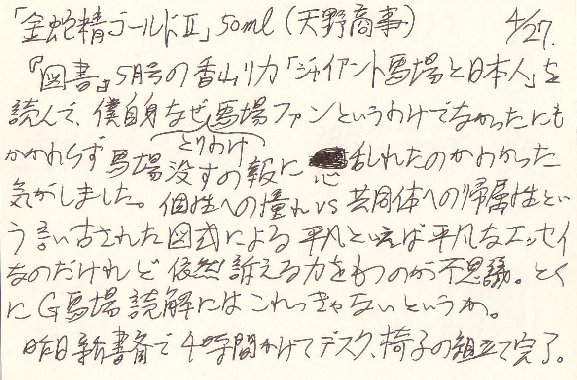 「金蛇精ゴールドⅡ」50ml（天野商事） 4/27.
『図書』5月号の香山リカ「ジャイアント馬場と日本人」を
読んで、僕自身なぜ馬場ファンというわけでなかったにも
とりわけ
かかわらず馬場没すの報に心乱れたのかわかった
気がしました。個性への憧れvs共同体への帰属性とい
う言い古された図式による平凡といえば平凡なエッセイ
なのだけれど依然訴える力をもつのが不思議。とく
にG馬場読解にはこれっきゃないというか。
昨日新書斎で4時間かけてデスク、椅子の組立て完了。